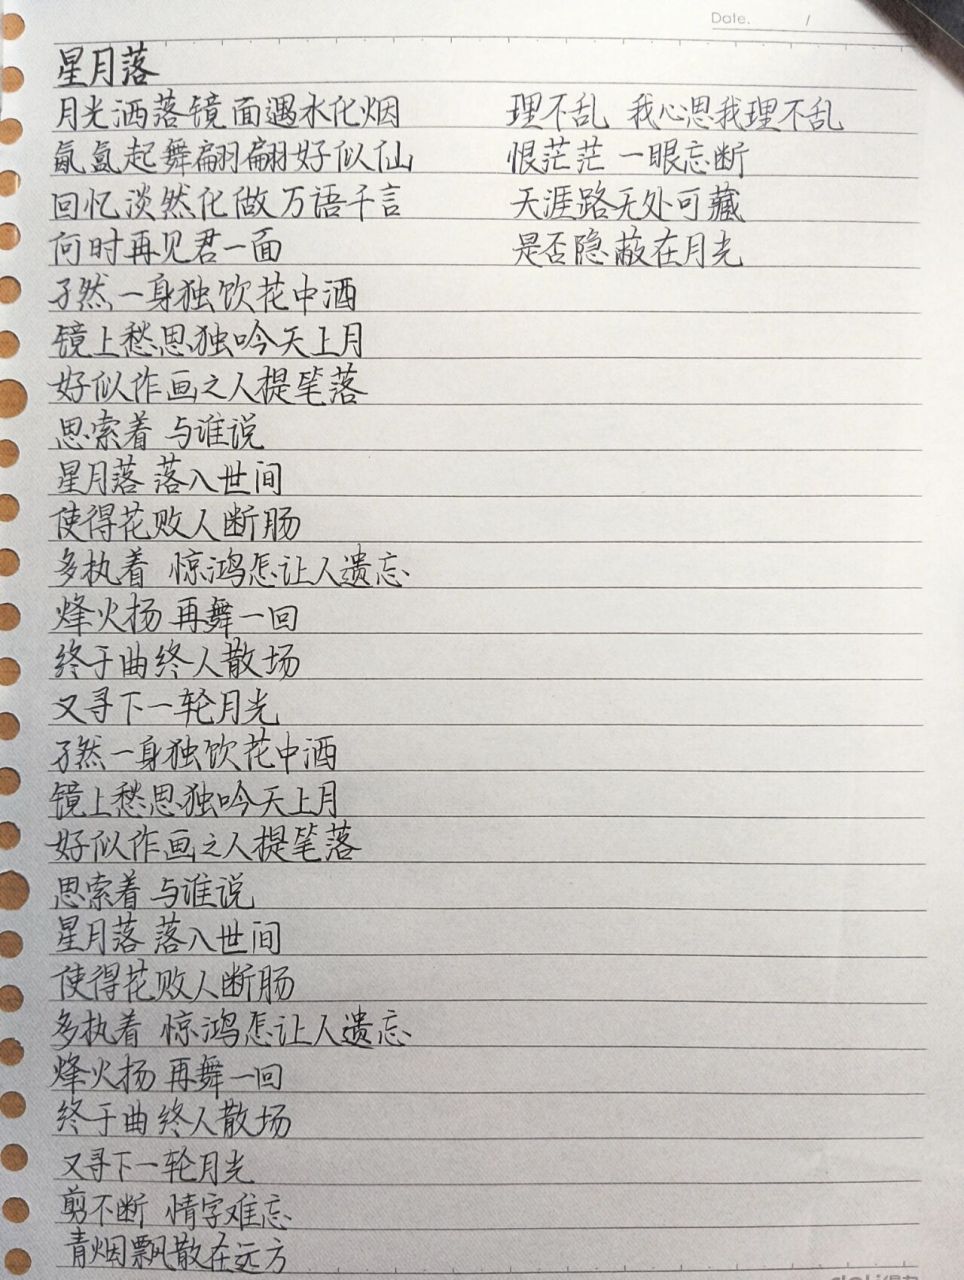 Date. /
星月落
月光洒落镜面遇水化烟
氤氲起舞翩翩好似仙
回忆淡然化做万语千言
何时再见君一面
孑然一身独饮花中酒
镜上愁思独吟天上月
好似作画之人提笔落
思索着 与谁说
星月落 落入世间
使得花败人断肠
多执着 惊鸿怎让人遗忘
烽火扬 再舞一回
终于曲终人散场
又寻下一轮月光
孑然一身独饮花中酒
镜上愁思独吟天上月
好似作画之人提笔落
思索着 与谁说
星月落 落入世间
使得花败人断肠
多执着 惊鸿怎让人遗忘
烽火扬 再舞一回
终于曲终人散场
又寻下一轮月光
剪不断 情字难忘
青烟飘散在远方
理不乱 我心思我理不乱
恨茫茫 一眼忘断
天涯路无处可藏
是否隐蔽在月光